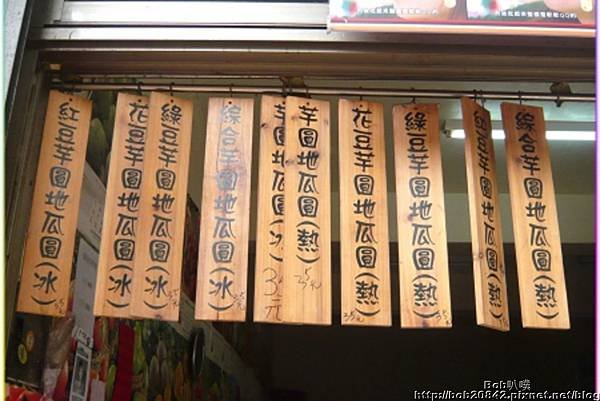 紅豆芋圓地瓜圓(冰)
35元
花豆芋圓地瓜圓(冰)
綠豆芋圓地瓜圓(冰)
35元
綜合芋圓地瓜圓(冰)
35元
芋圓地瓜圓(冰)
35元
芋圓地瓜圓(熱)
35元
花豆芋圓地瓜圓(熱)
35元
綠豆芋圓地瓜圓(熱)
35元
紅豆芋圓地瓜圓(熱)
綜合芋圓地瓜圓(熱)
35元
Bob叭噗
http://bob20842.pixnet.net/blog